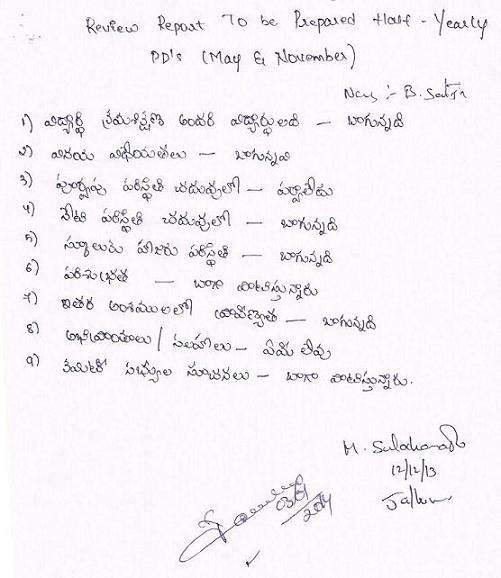 Review Report To be Prepared Half - Yearly
PD's (May & November)
B.
1) విద్యార్థి క్రమశిక్షణ అందరి విద్యార్థులది — బాగున్నది
2) వినయ విధేయతలు — బాగున్నవి
3) పూర్వపు పరిస్థితి చదువులో — పర్వాలేదు
4) నేటి పరిస్థితి చదువులో — బాగున్నది
5) స్కూలుకు హాజరు పరిస్థితి — బాగున్నది
6) పరిశుభ్రత — బాగా పాటిస్తున్నారు
7) ఇతర అంశములలో ప్రావీణ్యత — బాగున్నది
8) అభిప్రాయాలు / సలహాలు — ఏమి లేవు
9) కమిటీ సభ్యుల సూచనలు — బాగా పాటిస్తున్నారు.
M.
12/12/13